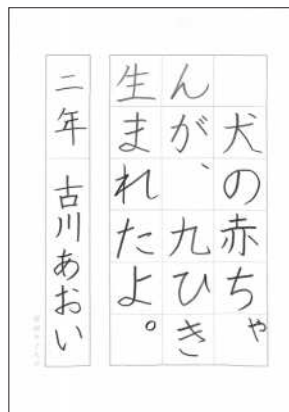 犬の赤ちゃ
んが、九ひき
生まれたよ。
二年 古川あおい